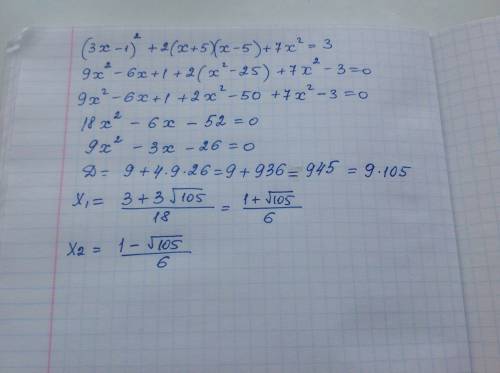 (3x-1)² + 2(x+5)(x-5) + 7x² = 3
9x² - 6x + 1 + 2(x² - 25) + 7x² - 3 = 0
9x² - 6x + 1 + 2x² - 50 + 7x² - 3 = 0
18x² - 6x - 52 = 0
9x² - 3x - 26 = 0
D = 9 + 4·9·26 = 9 + 936 = 945 = 9·105
x₁ = (3 + 3√105)/18 = (1 + √105)/6
x₂ = (1 - √105)/6